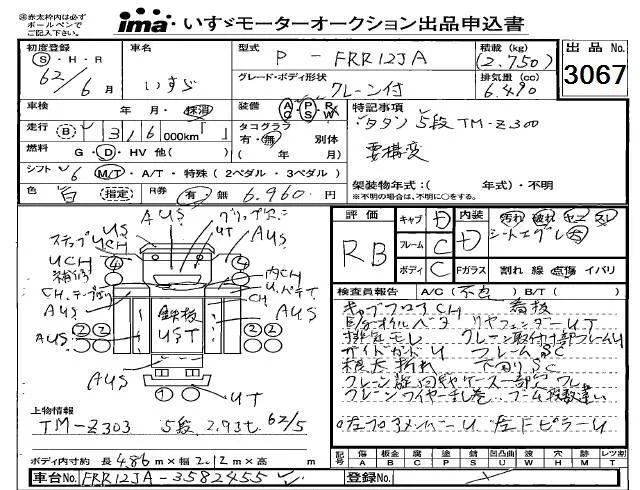 ㊟赤太枠内は必ず
ボールペンで
ご記入下さい。
ima いすゞモーターオークション出品申込書
初度登録
S・H・R
62/6月
車名
いすゞ
型式
P - FRR12JA
グレード・ボディ形状
クレーン付
積載 (kg)
(2.750)
排気量 (cc)
6.490
出品 No.
3067
車検
年 月・抹消
走行 (B) 316 000km「 」
燃料 G・D・HV 他( )
シフト 6 M/T・A/T・特殊(2ペダル・3ペダル)
色 白 (指定) R券 有 無 6.960円
装備 A/C P/S R/W
タコグラフ
有・無 別体
( 年 月)
特記事項
・タダン5段TM-Z300
要構変
架装物年式:( 年式)・不明
※不明の場合は、不明に○をする。
評価
RB
キャブ D
フレーム C
ボディ C
内装 D
汚れ 破れ ヤニ スレ
Fガラス 割れ 線 点傷 イバリ
検査員報告 A/C(不良) B/T( )
キャブフロアCH 看板
E/gオイルベタ リヤフェンダーUT
排気モレ クレーン取付け部フレームU
サイドガードU フレームSC
根太折れ 下回りSC
クレーン旋回ギヤケース一部欠ワレ
クレーンワイヤー乱巻
左ドピラーU
AUS
US
UT
AUS
ステップUCH
UCH
補修
内CH
CH.テープ貼り
CH
AUS
AUS
鉄板
UST
AUS
AUS
AUS
UT
上物情報
TM-Z303 5段 2.93t 62/5
ボディ内寸約 長4.86m×幅2.12m×高 m
記号 傷 A 板金 B 腐 C 塗 P 錆 S 凹凸曲 U 波 W 穴 H 跡 M ガラス T
車台No. FRR12JA-3582455
登録No.